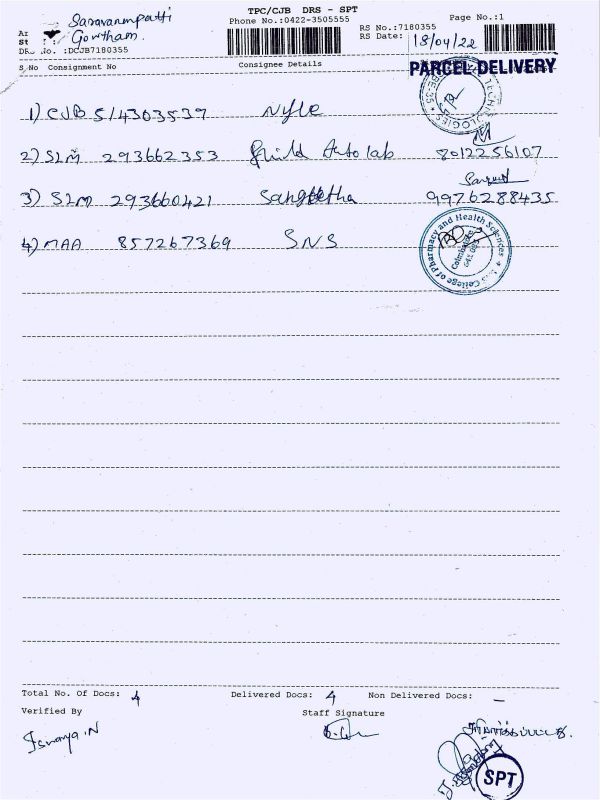 TPC/CJB DRS - SPT
Saravanampatti
Phone No.:0422-3505555
Page No.:1
Gowtham.
RS No.:7180355
RS Date: 18/04/22
DR No. :DCJB7180355
S No Consignment No Consignee Details
PARCEL DELIVERY
1) CJB 514303539 Nyle
2) SLM 293662353 Fluid Auto lab 8012256107
3) SLM 293660421 Sangeetha 9976288435
4) MAA 857267369 SNS
College of Pharmacy and Health Sciences
Coimbatore
Total No. Of Docs: 4 Delivered Docs: 4 Non Delivered Docs: –
Verified By Staff Signature
Iswarya.N
SPT